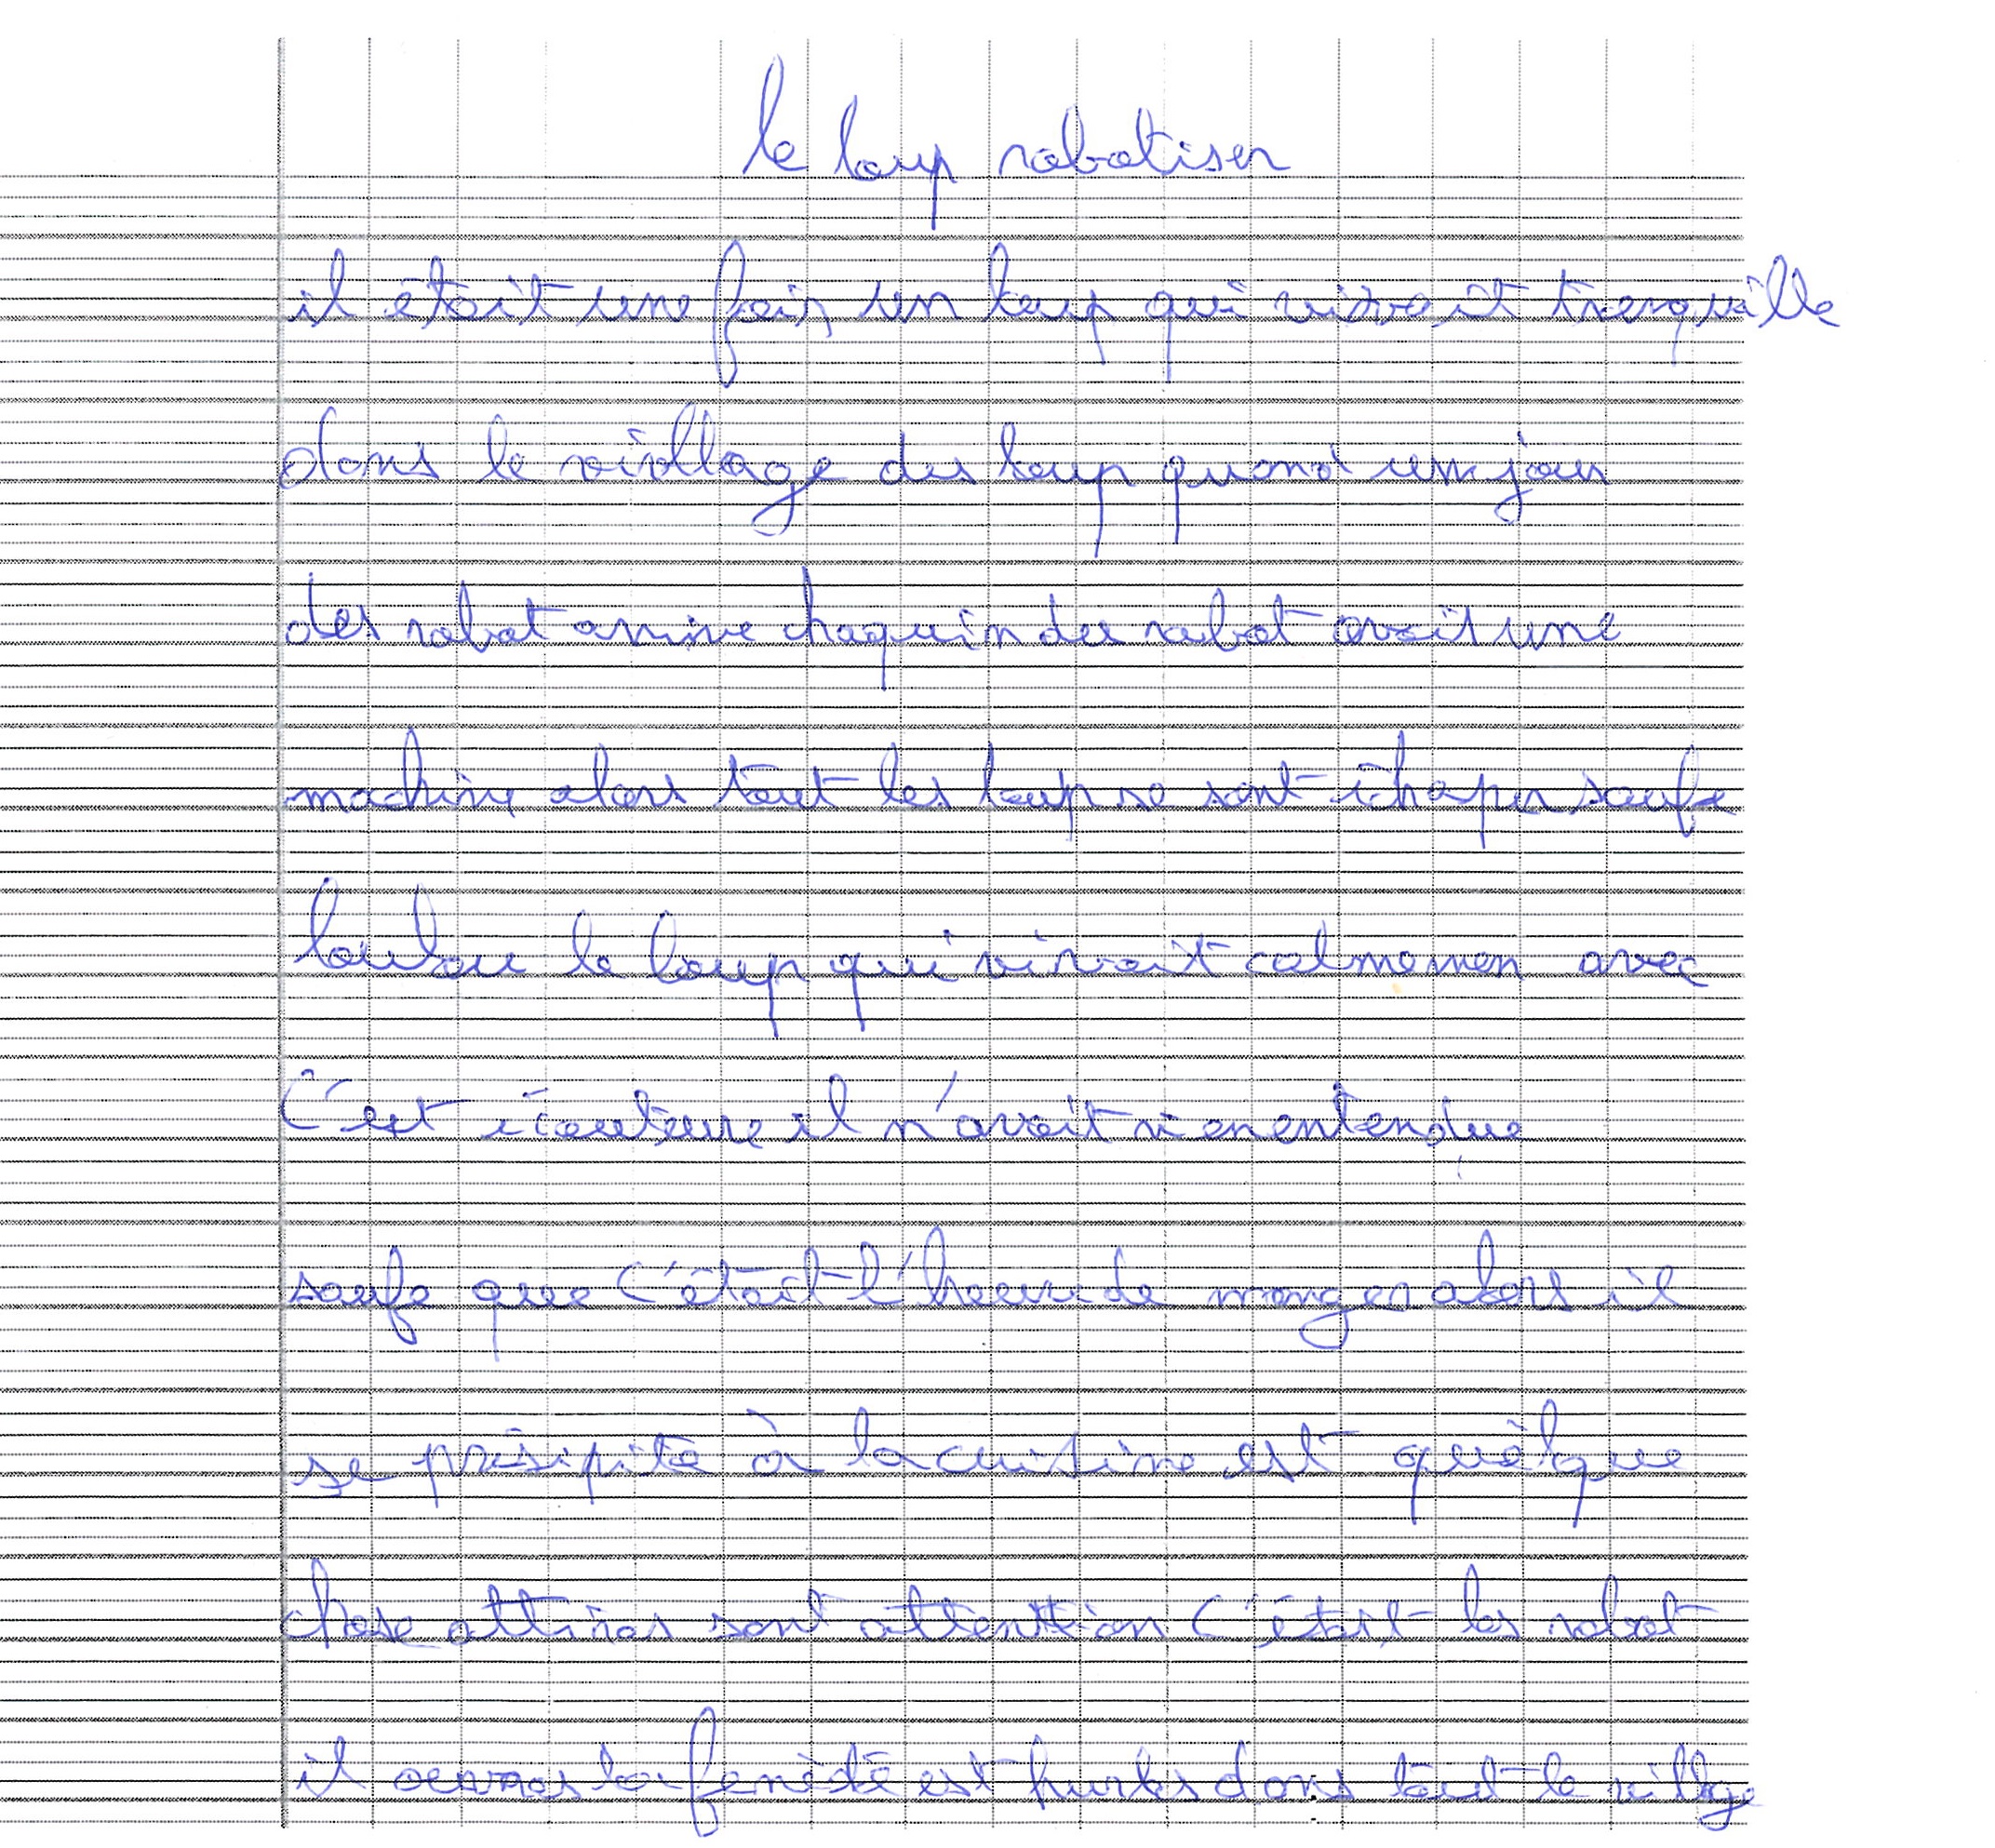 le loup robotiser
il était une fois un loup qui vivait trenquille
dans le vivllage des loup quand un jour
des robot arrive chaquin des robot avait une
machine alors tout les loup se sont échaper saufe
loulou le loup qui vivait calmemen avec
C'est écouteure il n'avait rien entendue
saufe que c'était l'heure de manger alors il
se présipita à la cuisine est quèlque
chose attiras sont attention c'était les robot
il ouvras la fenêtê est hurlas dans tout le villge